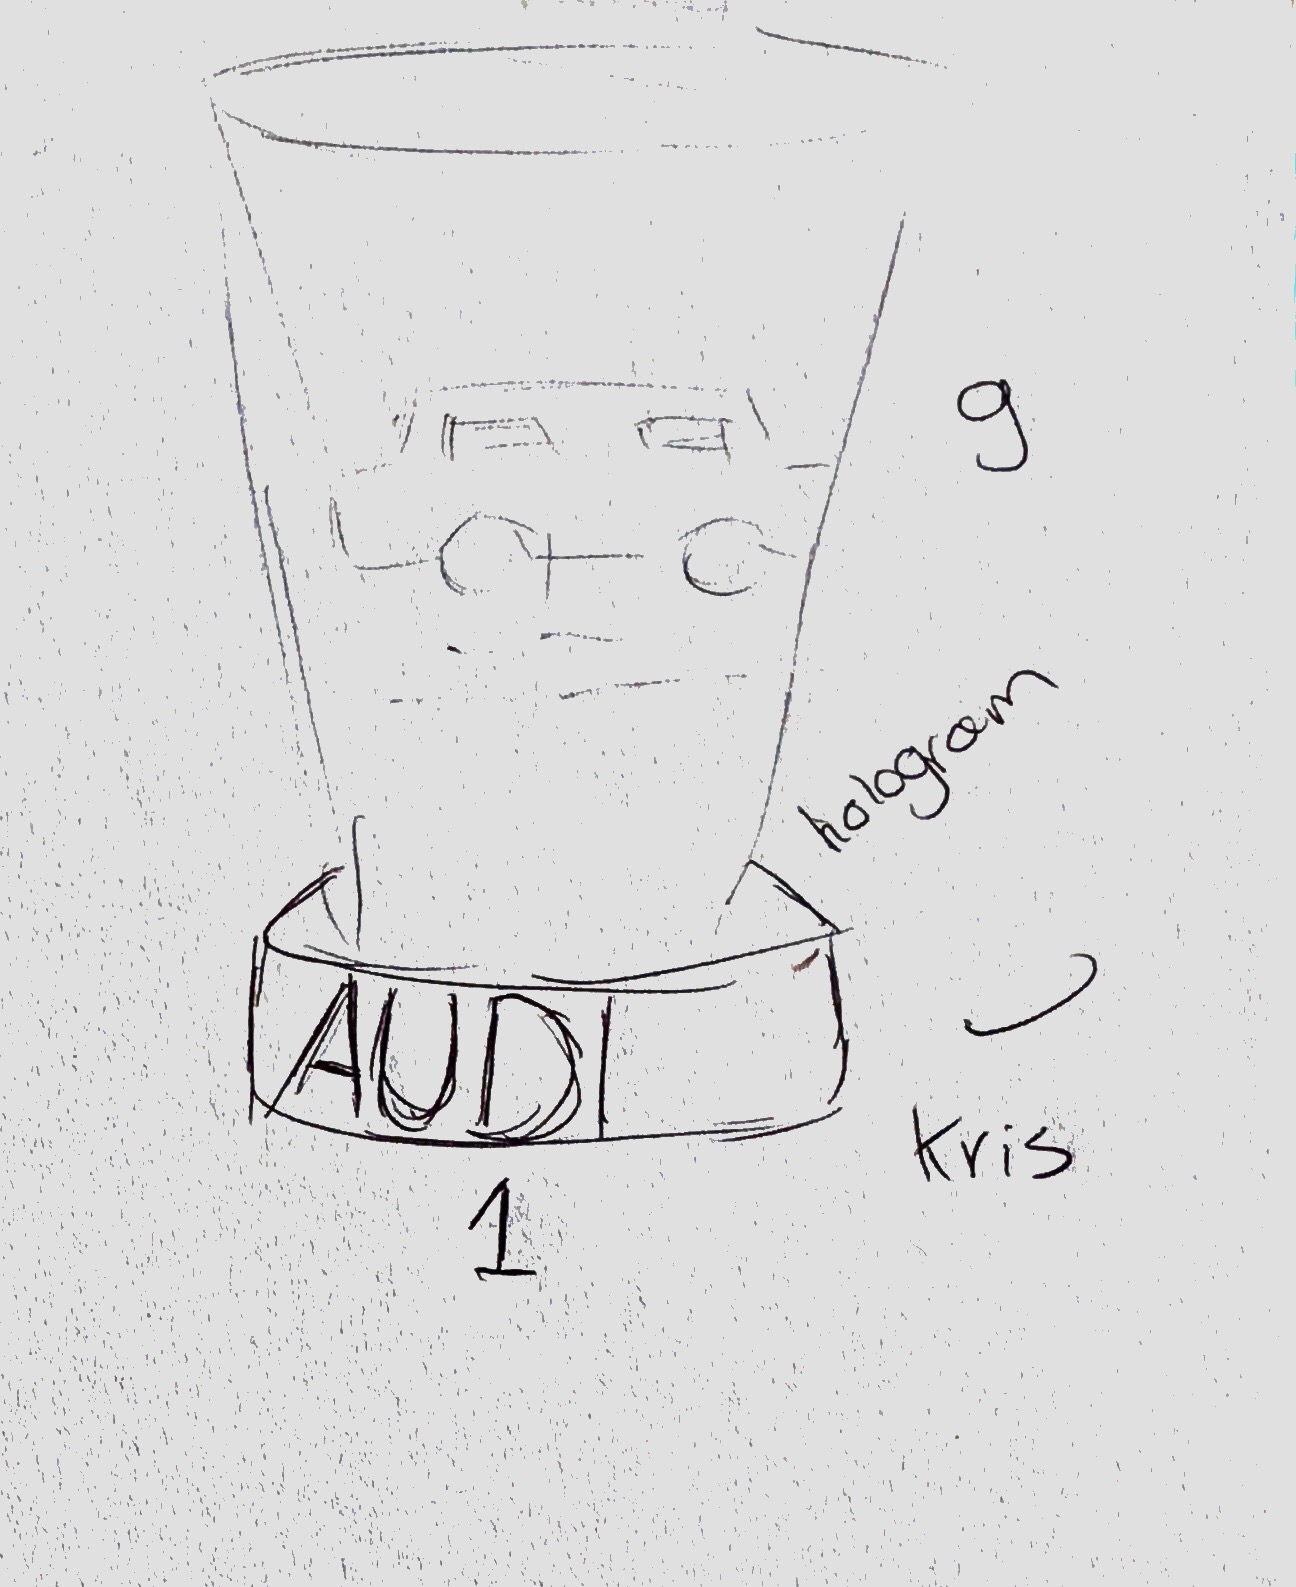 g
hologram
AUDI
Kris
1